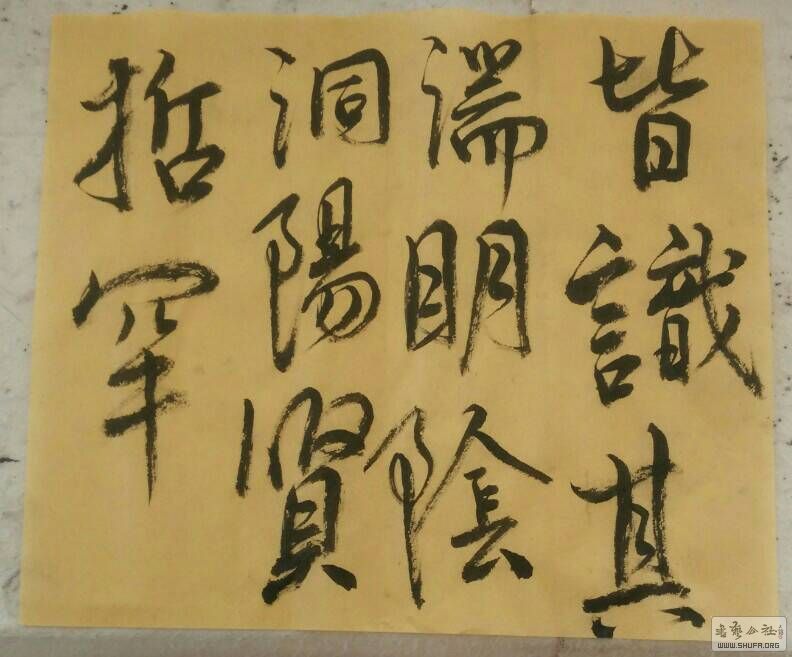 皆識其
湍明陰
洞陽賢
哲罕
書藝公社
WWW.SHUFA.ORG